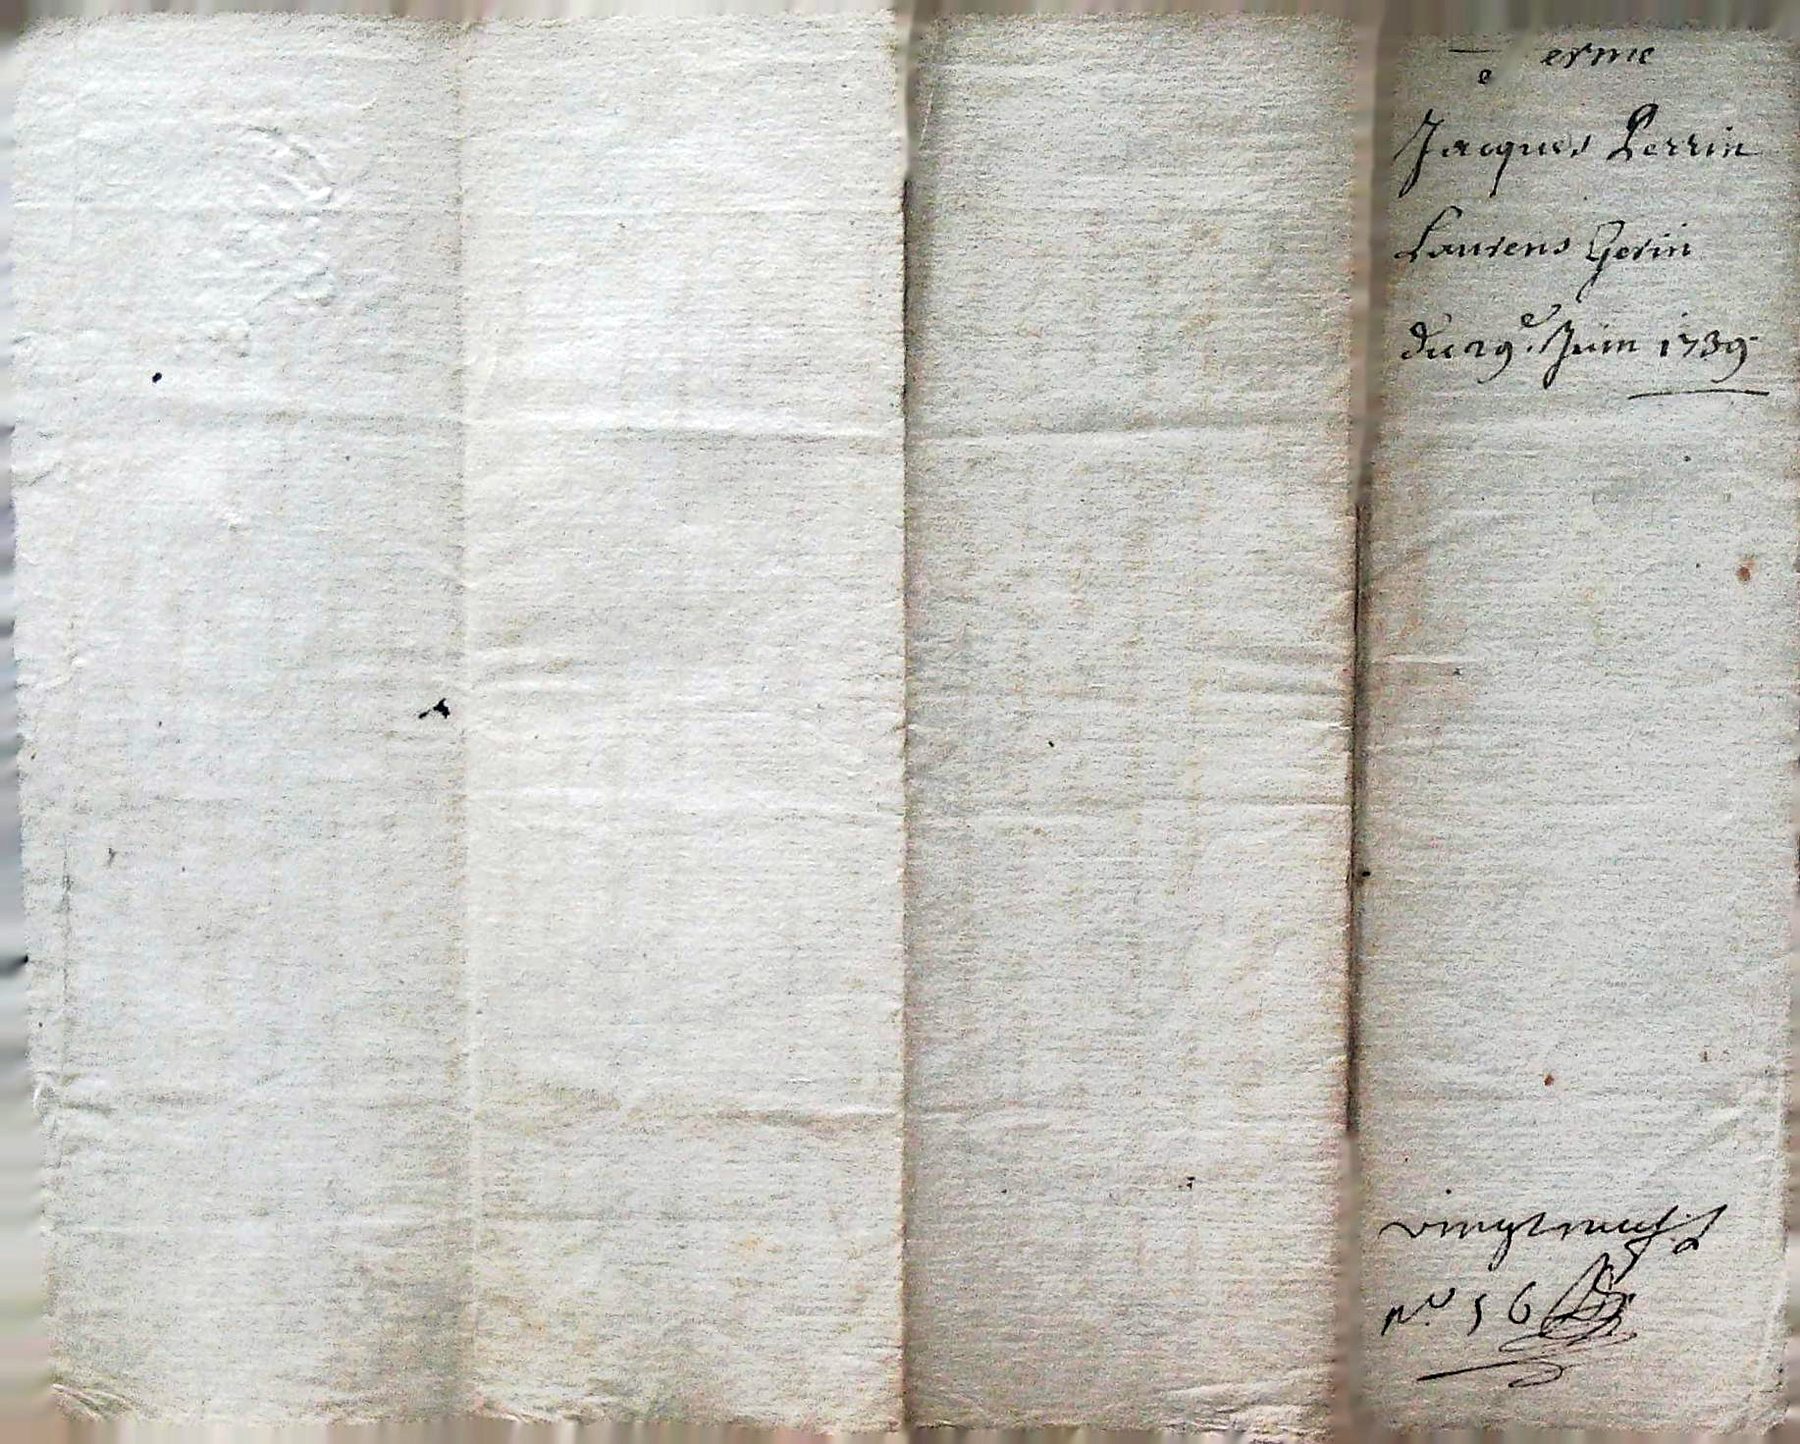 erme
Jacques Perrin
Laurens Gerin
du 29e. Juin 1739
vingt neuf
No. 56